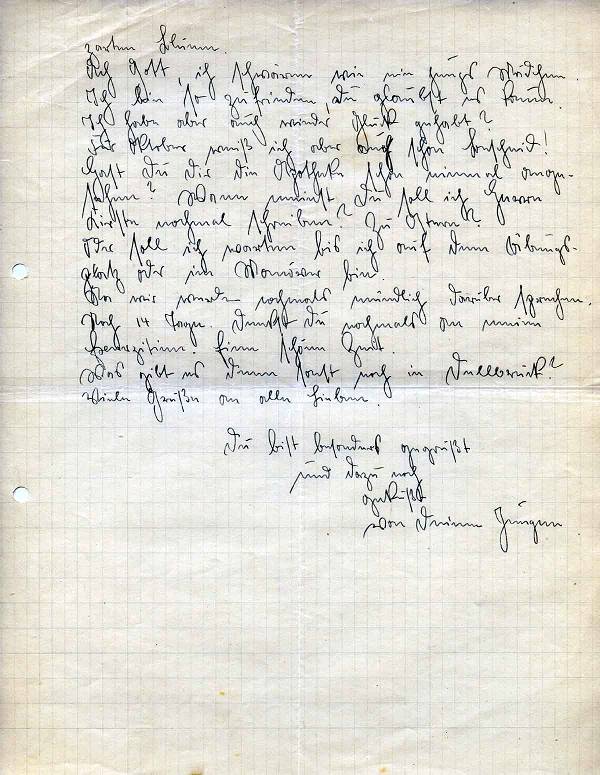 zarten Blumen.
Ach Gott, ich schwärme wie ein junges Mädchen.
Ich bin so zufrieden, Du glaubst es kaum.
Ich habe aber auch wieder Glück gehabt?
Für Oktober weiß ich aber auch schon bescheid!
Hast Du Dir die Apotheke schon einmal ange-
sehen? Wann meinst Du soll ich Herrn
nochmal schreiben? Zu Ostern?
Oder soll ich warten bis ich auf dem Übungs-
platz oder im Manöver bin.
Na wir werden nochmals mündlich darüber sprechen.
Noch 14 Tage. Denkst Du nochmals an meine
Eine schöne Zeit.
Was gibt es denn sonst noch in
Viele Grüße an alle Lieben.
Du bist besonders gegrüßt
und dazu noch
geküßt
von Deinem Jürgen